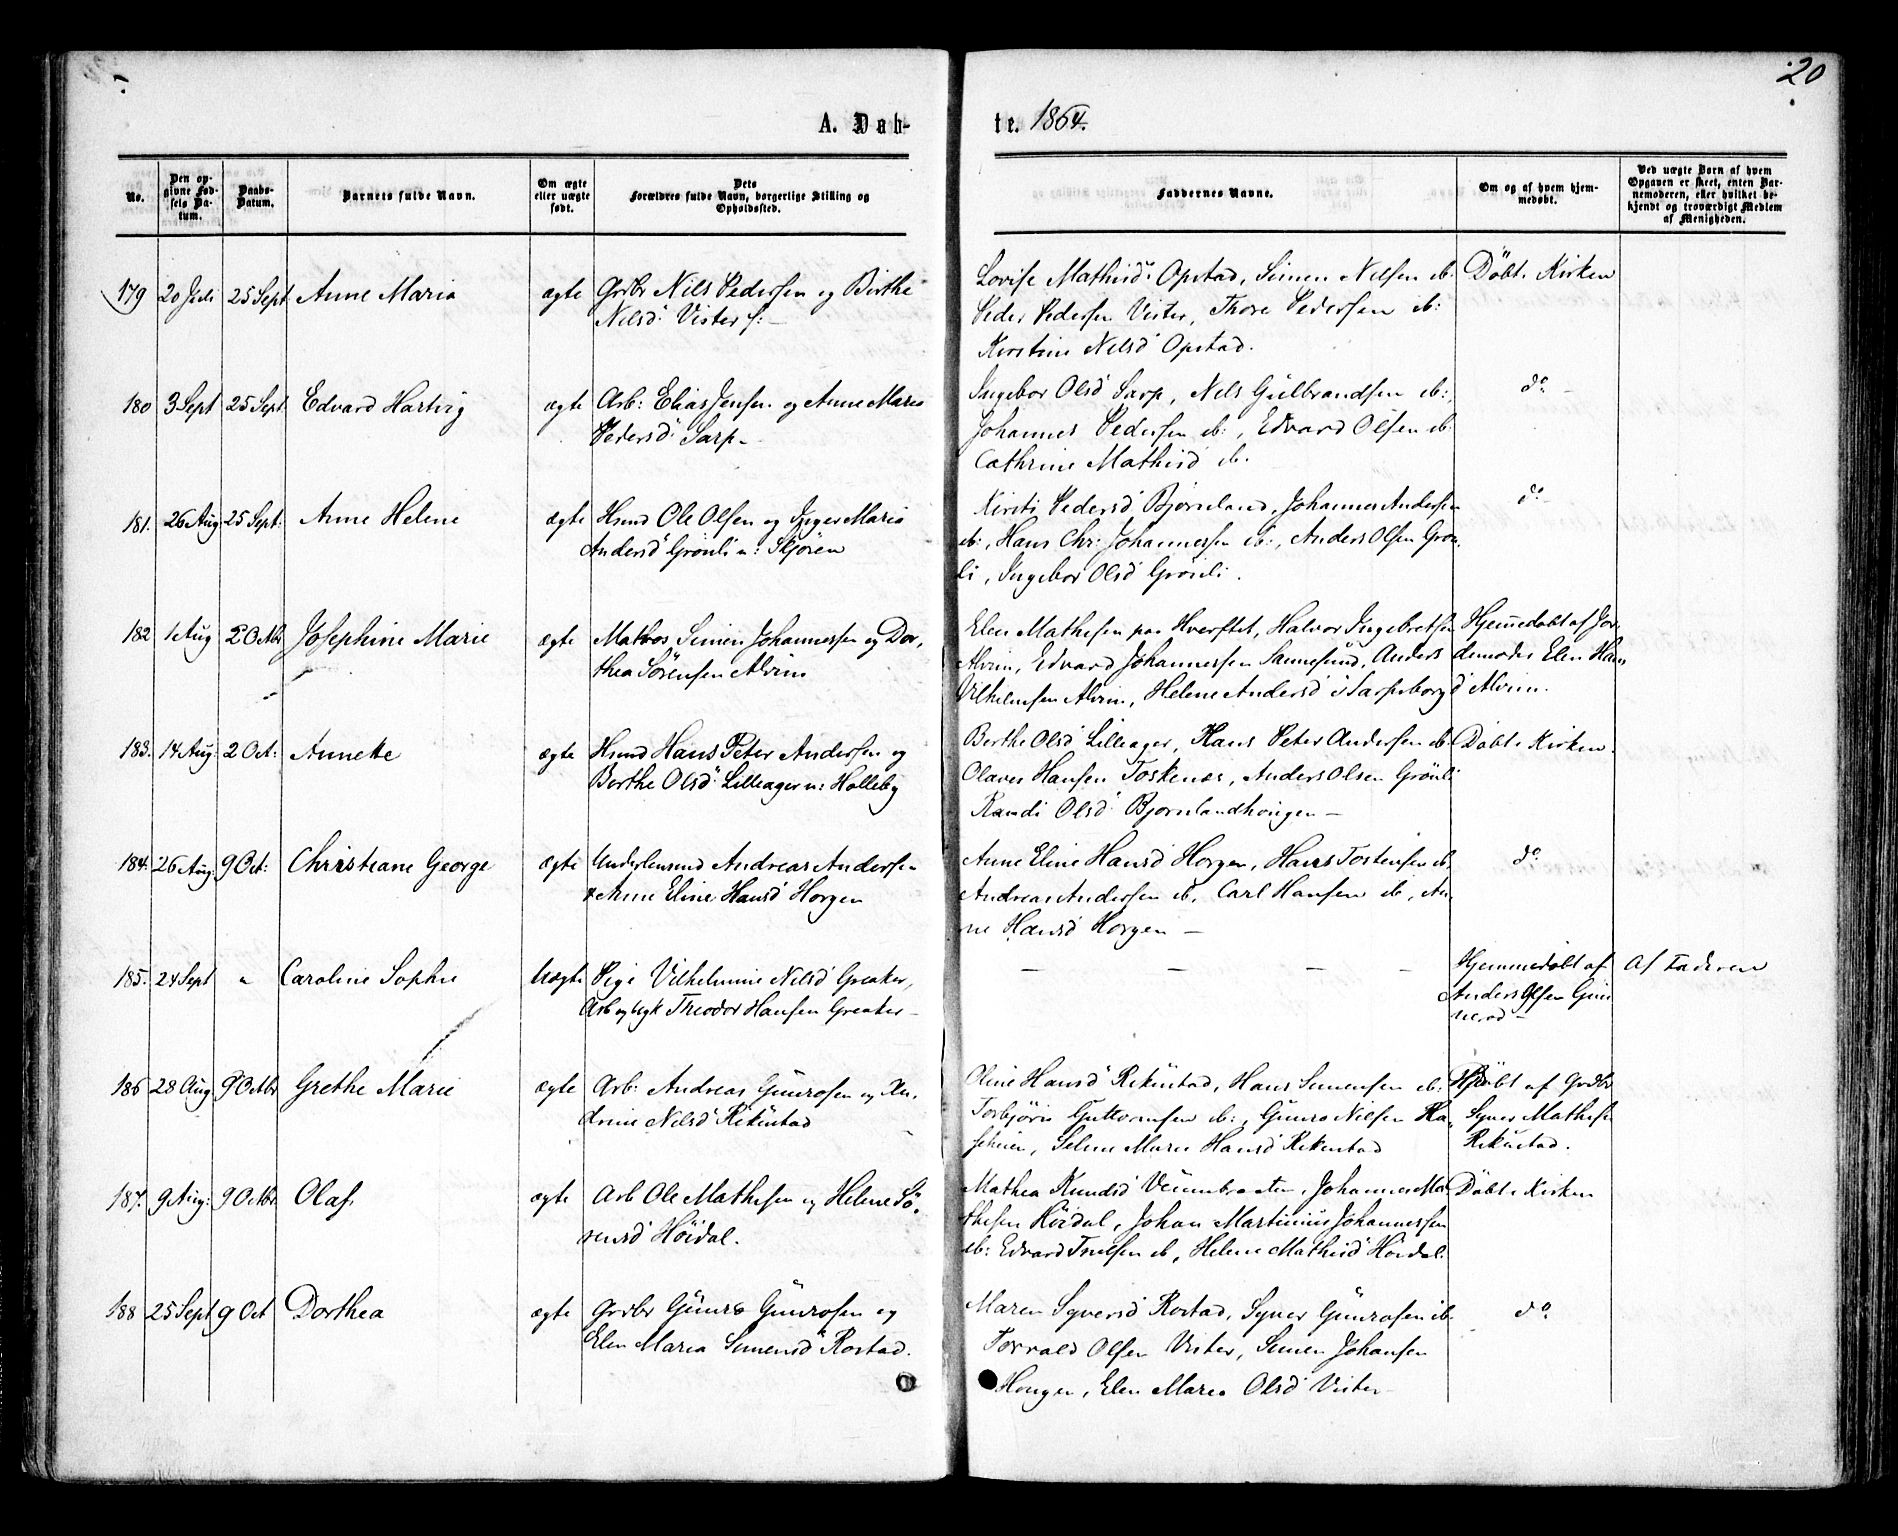 20
A. Døb-
te. 1864.
No.
Den op-
givne Fød-
sels Da-
tum.
Daabs-
Datum.
Barnets fulde Navn.
Om ægte
eller uægte
født.
Dets
Forældres fulde Navn, borgerlige Stilling og
Opholdssted.
Faddernes Navne.
Om og af hvem hjem-
medøbt.
Ved uægte Børn af hvem
Opgaven er skeet, enten Bar-
nemoderen, eller hvilket be-
kjendt og troværdigt Medlem
af Menigheden.
179 20 Juli 25 Sept Anne Maria ægte Grdbr Nils Pedersen og Birthe
Nilsd Vister
Lovise Mathisd Opstad, Simen Nilsen ib: Døbt i Kirken
Peder Pedersen Vister, Thore Pedersen ib:
Kirstine Nilsd Opstad.
180 3 Sept 25 Sept Edvard Hartvig ægte Arb: Elias Jensen og Anne Maria
Pedersd Sarp
Ingebor Olsd Sarp, Nels Gulbrandsen ib: do
Johannes Pedersen ib:, Edvard Olsen ib:
Cathrine Mathisd ib.
181. 26 Aug 25 Sept. Anne Helene ægte Hsmd Ole Olsen og Inger Maria
Andersd Grønli u: Skjøren
Kirsti Pedersd Bjørnland, Johannes Andersen do
ib:, Hans Chr: Johannessen ib:, Anders Olsen Grøn-
li, Ingebor Olsd Grønli.
182 1 Aug 2 Octbr Josephine Marie ægte Matros Simen Johannessen og Dor-
thea Sørensen Alvim
Elen Mathesen paa Hverftet, Halvor Ingebretsen Hjemmedøbt af Jor-
Alvim, Edvard Johannessen Sannesund, Anders demoder Elen Hans
Vilhelmsen Alvim, Helene Andersd i Sarpsborg d Alvim.
183. 14 Aug: 2 Oct: Annette ægte Hsmd Hans Peter Andersen og
Berthe Olsd Lilleager u: Holleby
Berthe Olsd Lilleager, Hans Peter Andersen ib Døbt i Kirken.
Olaves Hansen Toskenæs, Anders Olsen Grønli
Randi Olsd Bjørnlandhougen
184. 26 Aug: 9 Oct: Christiane George ægte Underlensmd Andreas Andersen
& Anne Eline Hansd Horgen
Anne Eline Hansd Horgen, Hans Tostensen ib, do
Andreas Andersen ib, Carl Hansen ib, An-
ne Hansd Horgen
185. 24 Sept " Caroline Sophie Uægte Pige Vilhelmine Nilsd Greaker,
Arb og Ugk Theodor Hansen Greaker
— — — — Hjemmedøbt af Af Faderen
Anders Olsen Gun-
nerød
186 28 Aug 9 Octbr Grethe Marie ægte Arb: Andreas Gunrosen og An-
drine Nilsd Rikustad
Oline Hansd Rikustad, Hans Simensen ib: Hjdøbt af Grdbr
Torbjørn Guttormsen ib:, Gunro Nilsen Syver Mathesen
Selene Marie Hansd Rikustad Rikustad.
187. 9 Aug: 9 Octbr Olaf, ægte Arb Ole Mathesen og Helene Sø-
rensd Høidal.
Mathea Knudsd, Johannes Ma- Døbt i Kirken
thesen Høidal, Johan Martinius Johannessen
ib: Edvard Truelsen ib, Helene Mathisd Høidal.
188 25 Sept 9 Oct Dorthea ægte Grdbr Gunro Gunrosen og
Elen Maria Simensd Rostad.
Maren Syversd Rostad, Syver Gunrosen ib. do.
Torvald Olsen Vister, Simen Johansen
Hougen, Elen Maria Olsd Vister